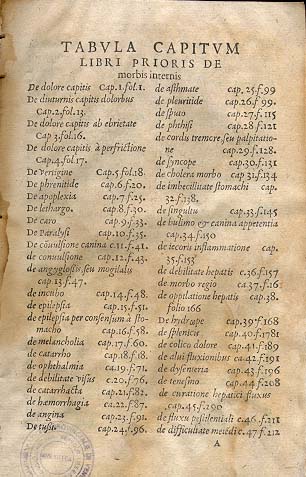 TABVLA CAPITVM
LIBRI PRIORIS DE
morbis internis
De dolore capitis Cap.1.fol.1.
De diuturnis capitis doloribus
Cap.2.fol.13.
De dolore capitis ab ebrietate
Cap 3.fol.16.
De dolore capitis à perfrictione
Cap.4.fol.17.
De Vertigine Cap.5.fol.18.
De phrenitide cap.6.f.20.
De apoplexia cap.7.f.25.
De lethargo. cap.8.f.30.
De caro cap.9.f.33.
De Paralysi cap.10.f.35.
De cōuulsione canina c.11.f.41.
de conuulsione cap.12.f.43.
de angyglossis seu mogilalis
cap 13.f.47.
de incubo cap.14.f.48.
de epilepsia cap.15.f.51.
de epilepsia per consensum à sto-
macho cap.16.f.58.
de melancholia cap.17.f.60.
de catarrho cap.18.f.18.
de ophthalmia ca.19.f.71.
de debilitate visus c.20.f.76.
de catarrhacta cap.21.f.82.
de hæmorrhagia ca.22.f.87.
de angina cap.23.f.91.
De tussi cap.24.f.96.
de asthmate cap.25.f.99
de pleuritide cap.26.f.99
de sputo cap.27.f.115
de phthisi cap.28.f.121
de cordis tremore,seu palpitatio-
ne cap.29.f.128.
de syncope cap.30.f.131
de cholera morbo cap.31.f.134
de imbecillitate stomachi cap.
32.f.138.
de singultu cap.33.f.145
de bulimo & canina appetentia
cap.34.f.150
de iecoris inflammatione cap.
35.f.153
de debilitate hepatis c.36.f.157
de morbo regio ca.37.f.16
de oppilatione hepatis cap.38.
folio 166
De hydrope cap.39.f.168
de splenicis cap.40.f.1781
de colico dolore cap.41.f.189
de alui fluxionibus ca.42.f.191
de dysenteria cap.43.f.196
de tenesmo cap.44.f.208
de curatione hepatici fluxus
cap.45.f.290
de fluxu pestilentiali c.46.f.211
de difficultate c.47.f.212
A